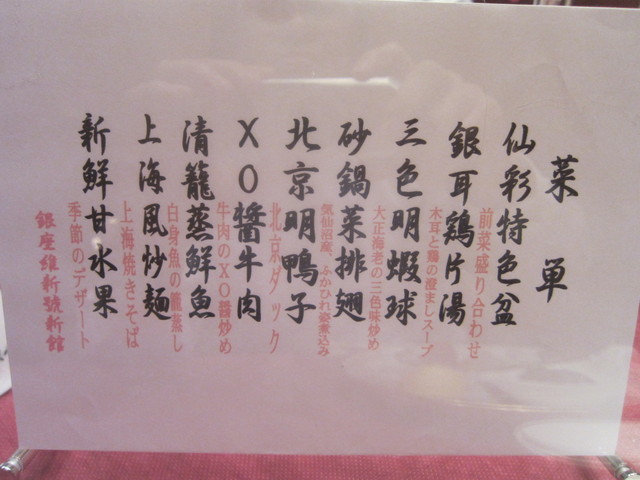 菜単
仙彩特色盆
前菜盛り合わせ
銀耳鶏片湯
木耳と鶏の澄ましスープ
三色明蝦球
大正海老の三色味炒め
砂鍋菜排翅
気仙沼産、ふかひれ姿煮込み
北京明鴨子
北京ダック
XO醤牛肉
牛肉のXO醤炒め
清籠蒸鮮魚
白身魚の籠蒸し
上海風炒麺
上海焼きそば
新鮮甘水果
季節のデザート
銀座維新號新館